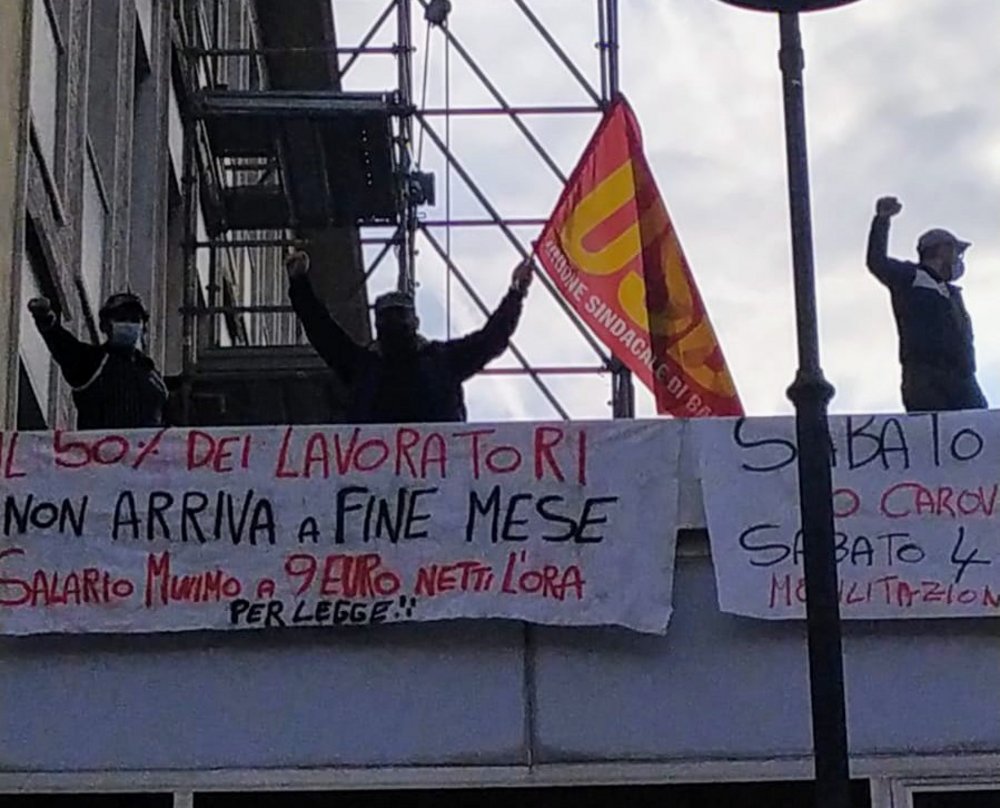 USB
UNIONE SINDACALE DI BA
IL 50% DEI LAVORATORI
NON ARRIVA A FINE MESE
SALARIO MINIMO A 9 EURO NETTI L'ORA
PER LEGGE!!
SABATO
O CAROV
SABATO 4
MOBILITAZION